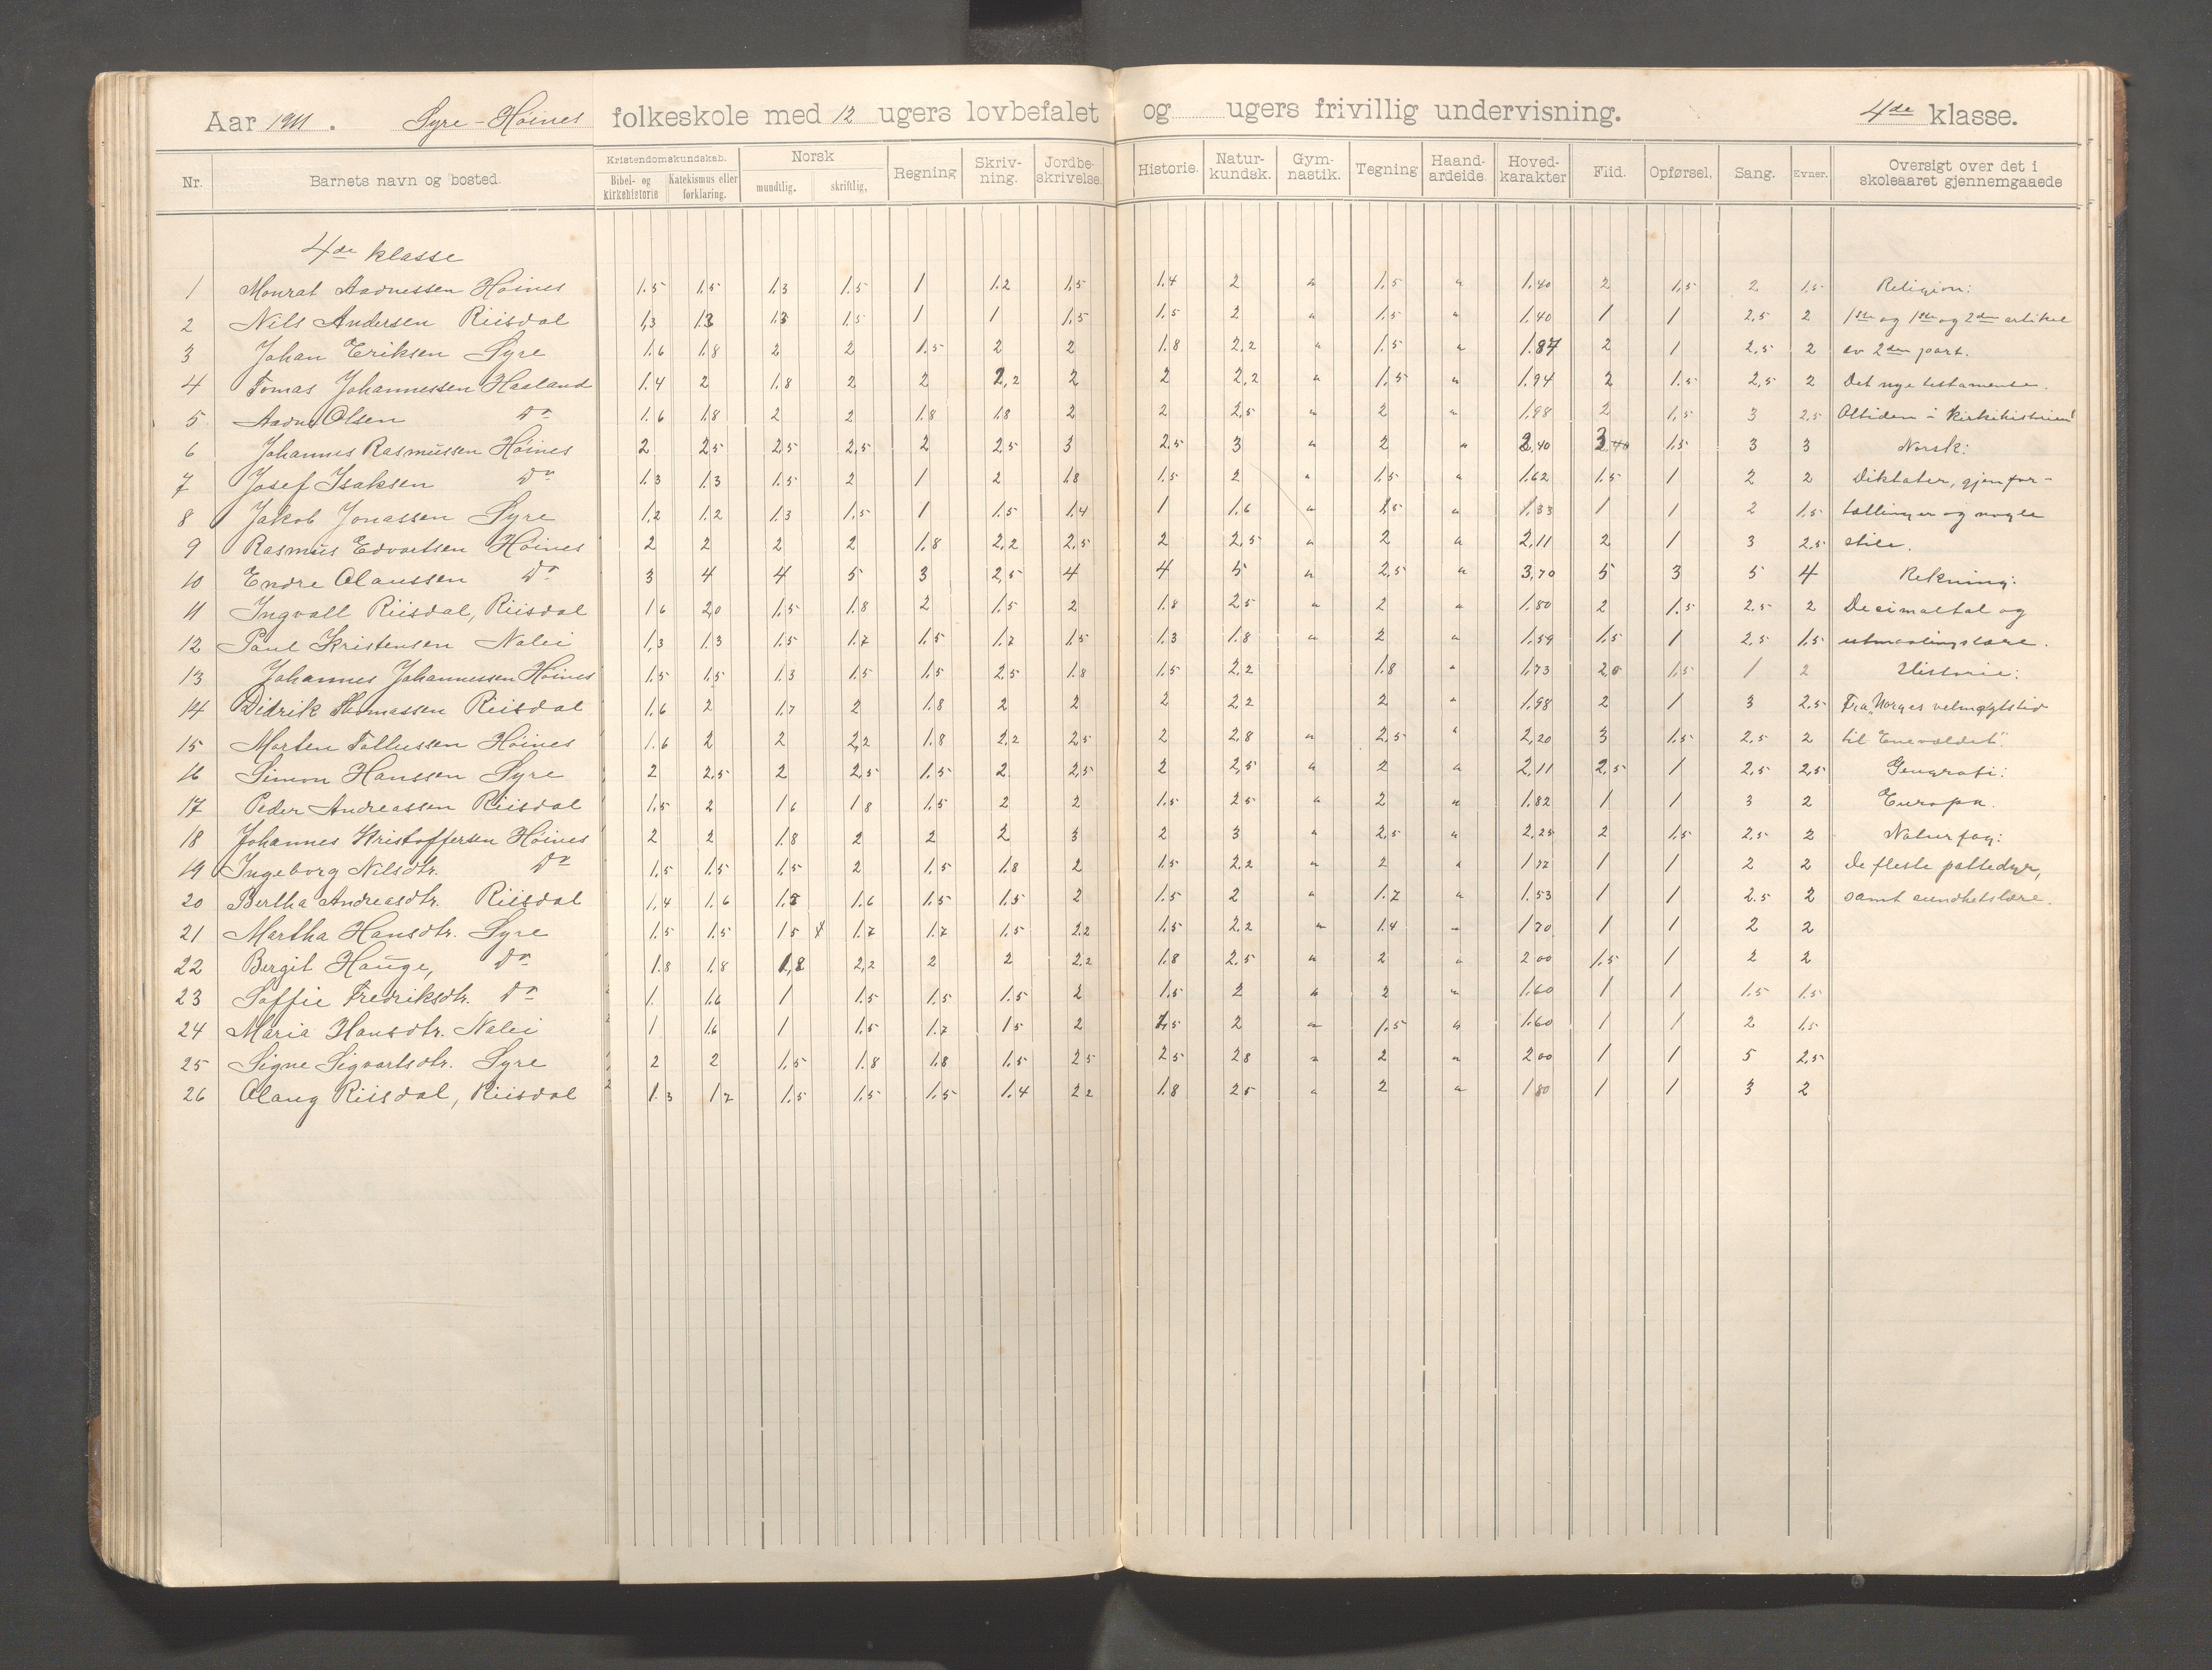 Aar 1911. Syre-Höines folkeskole med 12 ugers lovbefalet og ugers frivillig undervisning. 4de klasse.
Nr. Barnets navn og bosted. Kristendomskundskab. Bibel- og kirkehistorie Katekismus eller forklaring. Norsk mundtlig. skriftlig, Regning Skriv-ning. Jordbe-skrivelse. Historie. Natur-kundsk. Gym-nastik. Tegning Haand-arbeide. Hoved-karakter Flid. Opførsel. Sang. Evner. Oversigt over det i skoleaaret gjennemgaaede
4de klasse
1 Monrat Aadnessen Höines 1.5 1,5 1.3 1.5 1 1.2 1,5 1.4 2 " 1,5 " 1.40 2 1,5 2 1.5 Religion:
2 Nils Andersen Riisdal 1,3 1.3 1.3 1.5 1 1 1,5 1.5 2 " 1,5 " 1.40 1 1 2,5 2 1ste og 1ste og 2den artikel
3 Johan Eriksen Syre 1.6 1.8 2 2 1.5 2 2 1.8 2,2 " 1.5 " 1.87 2 1 2,5 2 av 2den part.
4 Tomas Johannessen Haaland 1.4 2 1.8 2 2 2,2 2 2 2,2 " 1.5 " 1.94 2 1.5 2,5 2 Det nye testamente.
5 Aadne Olsen Do 1.6 1.8 2 2 1.8 1.8 2 2 2,5 " 2 " 1.98 2 1,5 3 2,5 Oltiden i kirkehistorien
6 Johannes Rasmussen Höines 2 2.5 2,5 2,5 2 2.5 3 2.5 3 " 2 " 2,40 3 1.5 3 3 Norsk:
7 Josef Isaksen Do 1.3 1.3 1.5 2 1 2 1.8 1.5 2 " 1.5 " 1.62 1.5 1 2 2 Diktater, gjenfor-
8 Jakob Jonassen Syre 1,2 1.2 1.3 1,5 1 1.5 1.4 1 1.6 " 1,5 " 1.33 1 1 2 1.5 tællinger og nogle
9 Rasmus Edvartsen Höines 2 2 2 2 1.8 2,2 2,5 2 2,5 " 2 " 2,11 2 1 3 2.5 stile.
10 Endre Olaussen Do 3 4 4 5 3 2,5 4 4 5 " 2,5 " 3,70 5 3 5 4 Rekning:
11 Ingvall Riisdal, Riisdal 1.6 2,0 1.5 1.8 2 1.5 2 1.8 2.5 " 2 " 1.80 2 1.5 2.5 2 Desimaltal og
12 Paul Kristensen Nalei 1,3 1.3 1.5 1.7 1.5 1.7 1.5 1.3 1.8 " 2 " 1.59 1.5 1 2,5 1.5 utmaalingslære.
13 Johannes Johannessen Höines 1.5 1.5 1.3 1.5 1.5 2.5 1.8 1.5 2.2 1.8 " 1,73 2,0 1.5 1 2 Historie:
14 Didrik Thomassen Riisdal 1.6 2 1.7 2 1.8 2 2 2 2.2 2 " 1,98 2 1 3 2,5 Fra "Norges velmagtstid
15 Morten Tollussen Höines 1.6 2 2 2,2 1.8 2.2 2,5 2 2.8 " 2,5 " 2,20 3 1.5 2.5 2 til Enevældet".
16 Simon Hanssen Syre 2 2,5 2 2,5 1.5 2 2,5 2 2,5 " 2 " 2,11 2,5 1 2,5 2,5 Geografi:
17 Peder Andreassen Riisdal 1.5 2 1.6 1.8 1.5 2 2 1.5 2.5 " 2 " 1.82 1 1 3 2 Europa.
18 Johannes Kristoffersen Höines 2 2 1.8 2 2 2 3 2 3 " 2,5 " 2,25 2 1.5 2,5 2 Naturfag:
19 Ingeborg Nilsdtr. Do 1,5 1.5 1,5 2 1.5 1.8 2 1.5 2.2 " 2 " 1.72 1 1 2 2 De fleste pattedyr,
20 Bertha Andreasdtr. Riisdal 1,4 1.6 1.5 1.6 1.5 1.5 2 1.5 2 " 1.7 " 1.53 1 1 2.5 2 samt sundhetslære.
21 Martha Hansdtr. Syre 1.5 1.5 1.5 1.7 1.7 1.5 2.2 1.5 2.2 " 1.4 " 1.70 1 1 2 2
22 Bergit Hauge, Do 1.8 1.8 1,8 2,2 2 2 2,2 1.8 2,5 " 2 " 2.00 1.5 1 2 2
23 Soffie Fredriksdtr. Do 1. 1.6 1 1.5 1.5 1.5 2 1.5 2 " 2 " 1.60 1 1 1.5 1.5
24 Maria Hansdtr. Nalei 1 1.6 1 1.5 1.7 1.5 2 1.5 2 " 1.5 " 1.60 1 1 2 1.5
25 Signe Sigvartsdtr. Syre 2 2 1.5 1.8 1.8 1.5 2.5 2.5 2.8 " 2 " 2.00 1 1 5 2,5
26 Olaug Riisdal, Riisdal 1.3 1.2 1.5 1.5 1.5 1.4 2.2 1.8 2.5 " 2 " 1.80 1 1 3 2